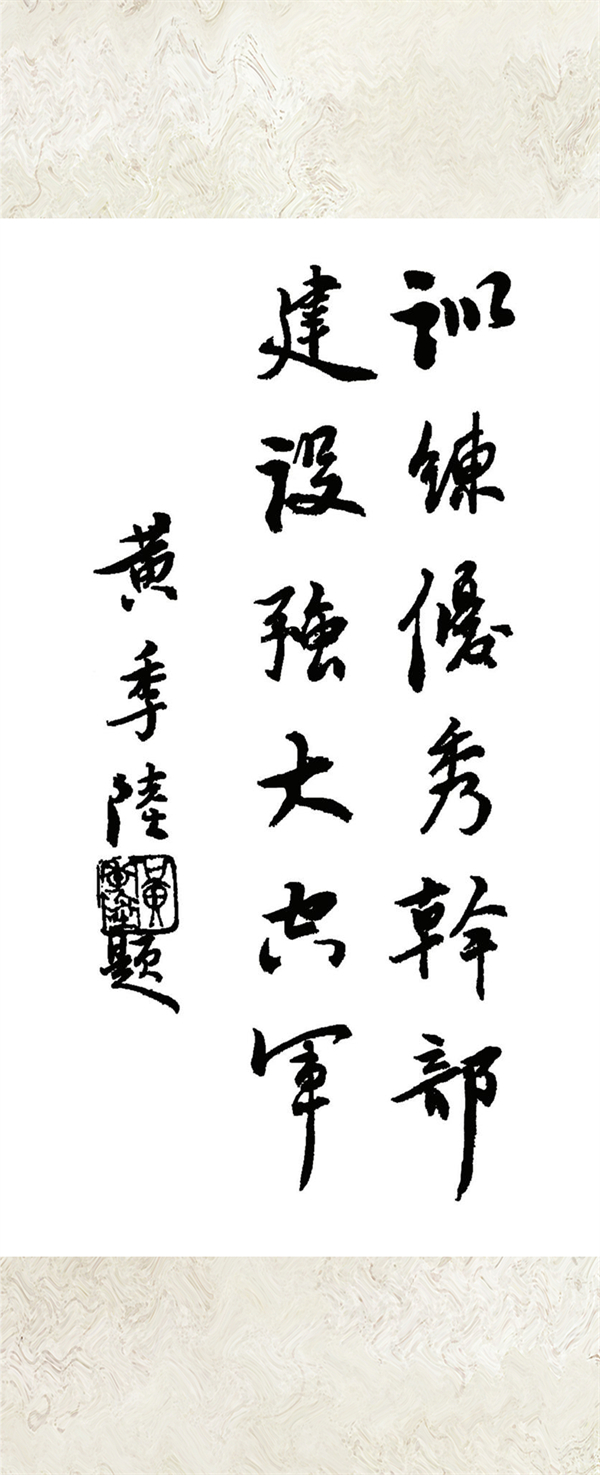 訓練優秀幹部
建設強大空軍
黃季陸題